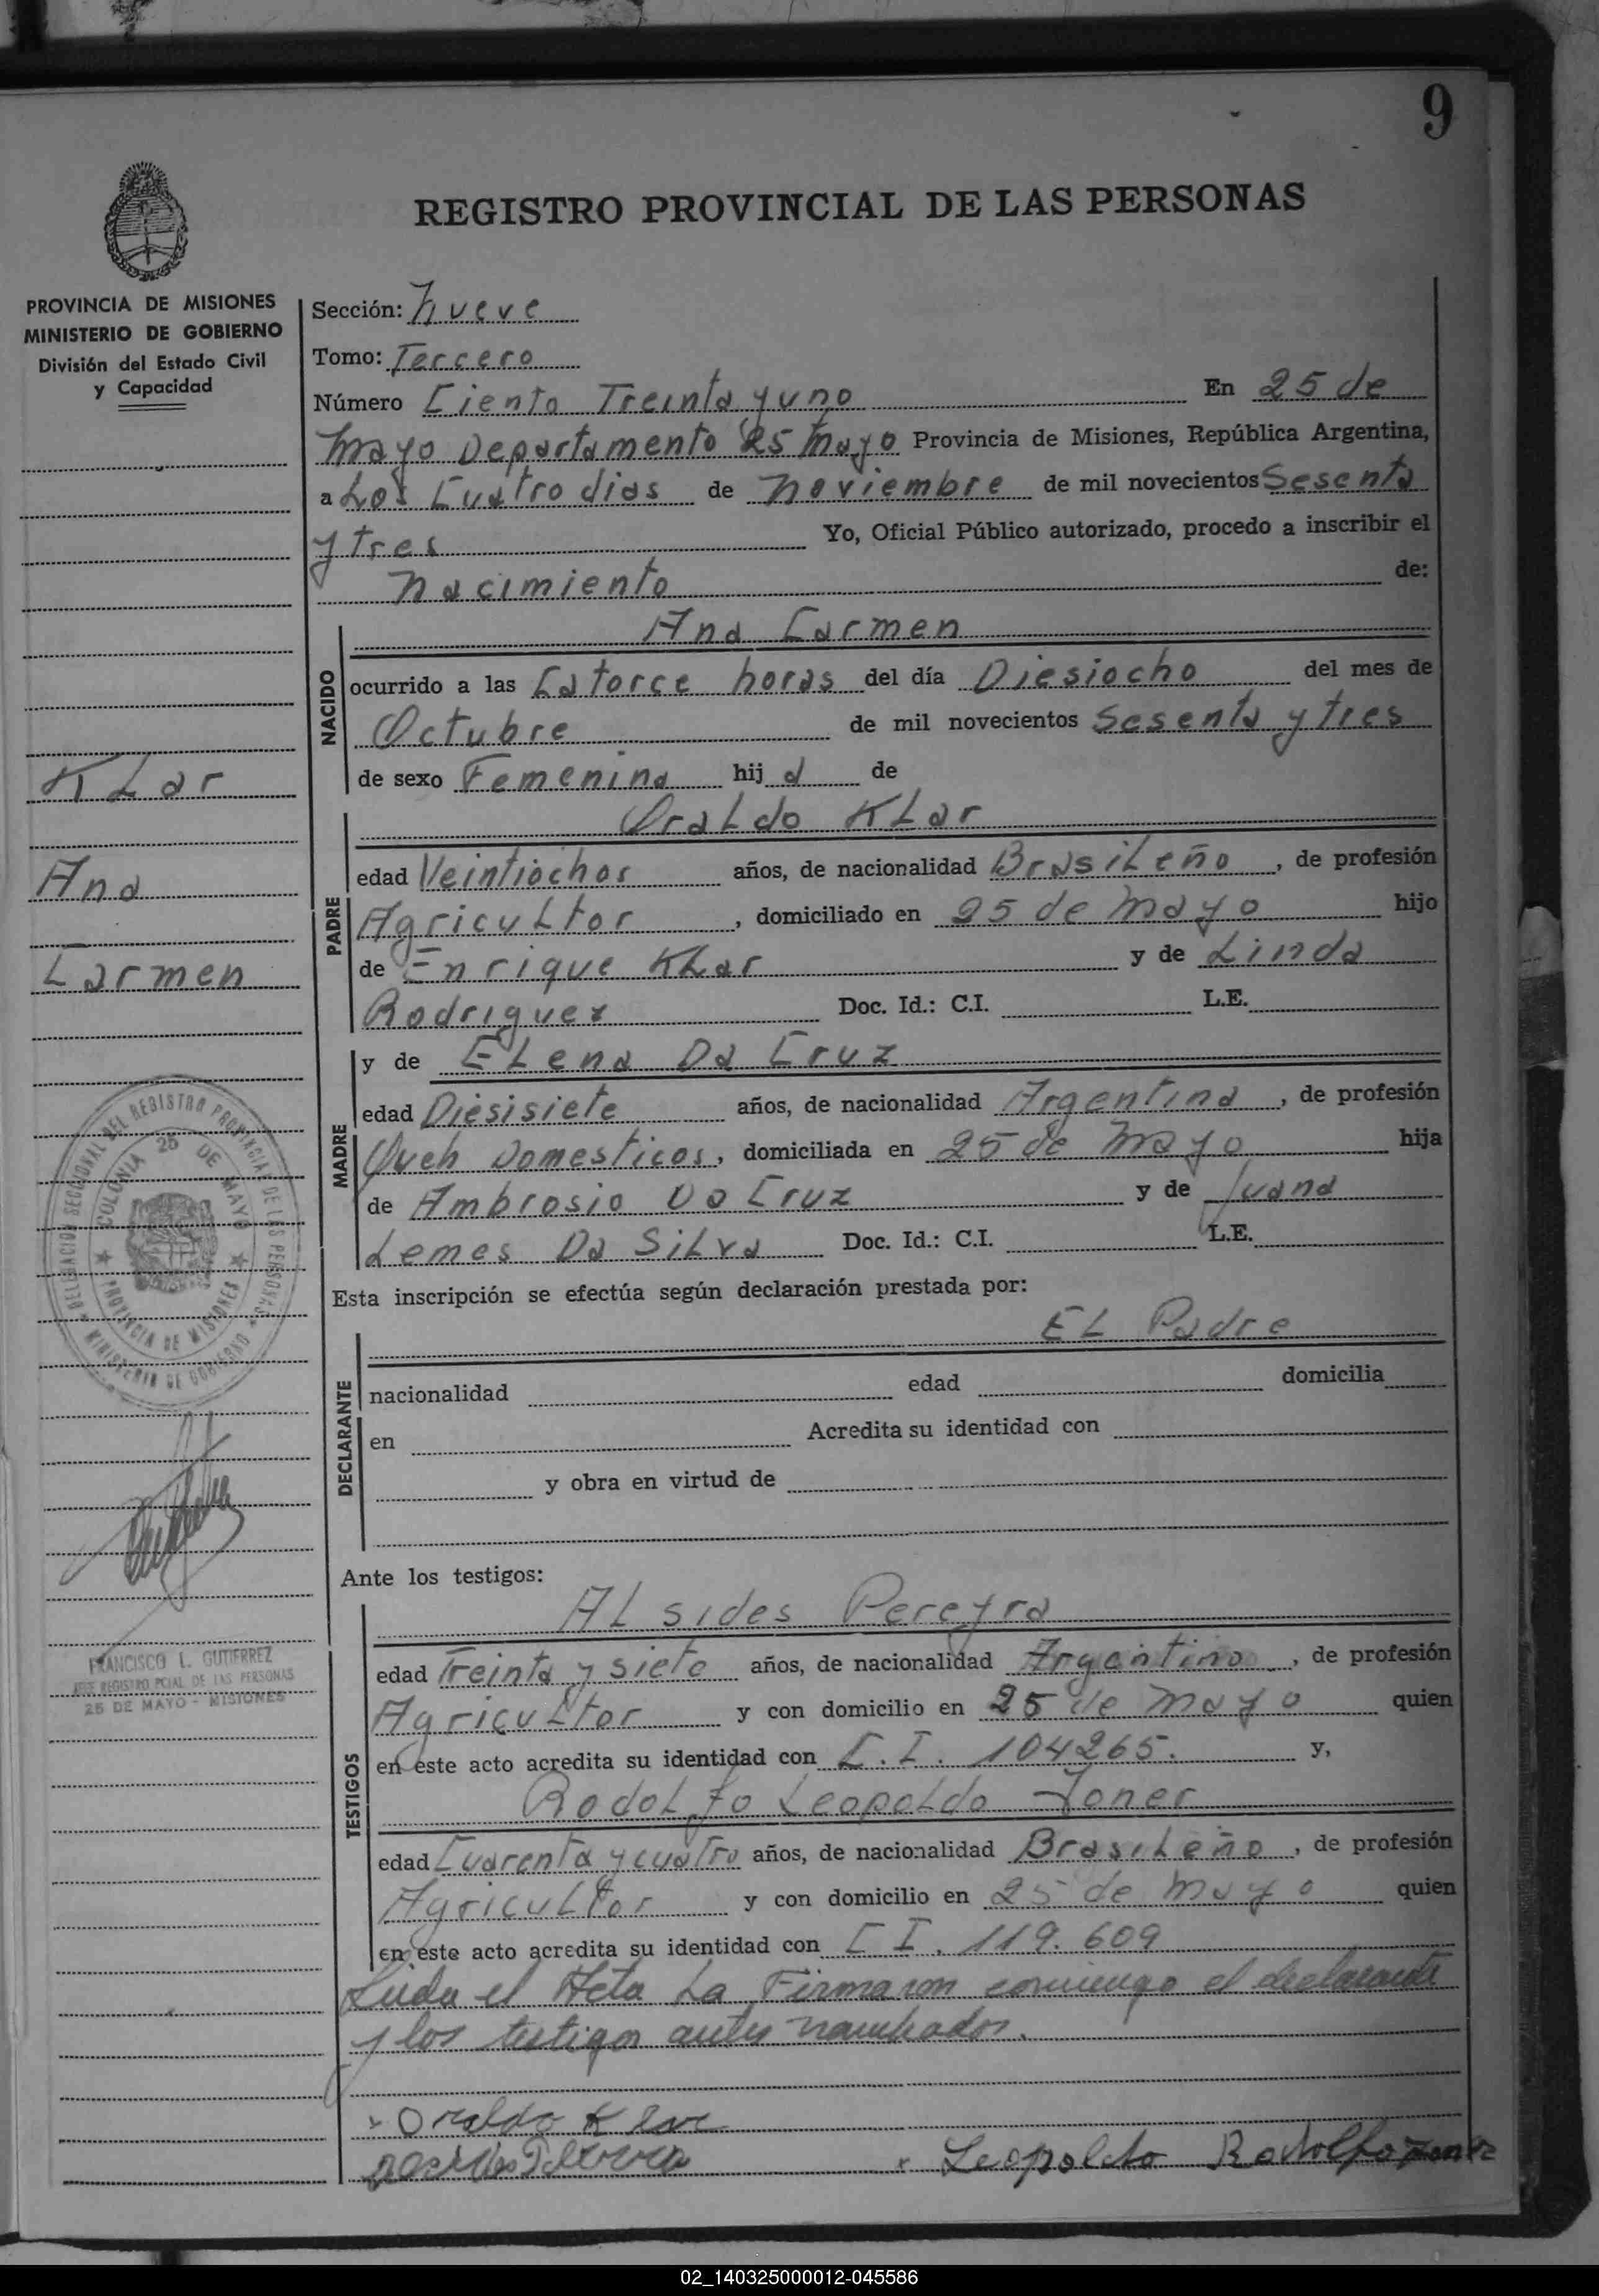 9
REGISTRO PROVINCIAL DE LAS PERSONAS
PROVINCIA DE MISIONES
MINISTERIO DE GOBIERNO
División del Estado Civil
y Capacidad
Klar
Ana
Carmen
DELEGACION SECCIONAL DEL REGISTRO PROVINCIAL DE LAS PERSONAS
MINISTERIO DE GOBIERNO
COLONIA 25 DE MAYO
PROVINCIA DE MISIONES
FRANCISCO L. GUTIERREZ
JEFE REGISTRO PCIAL. DE LAS PERSONAS
25 DE MAYO - MISIONES
Sección: Nueve
Tomo: Tercero
Número Ciento Treinta y uno En 25 de
Mayo Departamento 25 Mayo Provincia de Misiones, República Argentina,
a Los Cuatro dias de Noviembre de mil novecientos Sesenta
y tres Yo, Oficial Público autorizado, procedo a inscribir el
Nacimiento de:
NACIDO
Ana Carmen
ocurrido a las Catorce horas del día Diesiocho del mes de
Octubre de mil novecientos Sesenta y tres
de sexo Femenina hij a de
PADRE
Oraldo Klar
edad Veintiochos años, de nacionalidad Brasileño, de profesión
Agricultor, domiciliado en 25 de Mayo hijo
de Enrique Klar y de Linda
Rodriguez Doc. Id.: C.I. L.E.
MADRE
y de Elena Da Cruz
edad Diesisiete años, de nacionalidad Argentina, de profesión
Queh Domesticos, domiciliada en 25 de Mayo hija
de Ambrosio Da Cruz y de Juana
Lemes Da Silva Doc. Id.: C.I. L.E.
Esta inscripción se efectúa según declaración prestada por:
DECLARANTE
El Padre
nacionalidad edad domicilia
en Acredita su identidad con
y obra en virtud de
Ante los testigos:
TESTIGOS
Alsides Pereyra
edad Treinta y siete años, de nacionalidad Argentino, de profesión
Agricultor y con domicilio en 25 de Mayo quien
en este acto acredita su identidad con C.I. 104265. y,
Rodolfo Leopoldo Zoner
edad Cuarenta y cuatro años, de nacionalidad Brasileño, de profesión
Agricultor y con domicilio en 25 de Mayo quien
en este acto acredita su identidad con C I. 119.609
Leida el Acta La Firmaron conmigo el declarante
y los testigos antes nombrados.
Oraldo Klar
Leopoldo Rodolfo
02_140325000012-045586